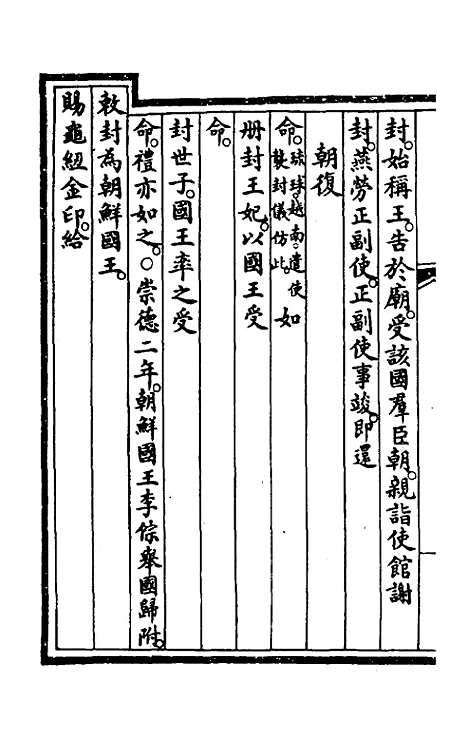 封。始稱王。告於廟。受該國羣臣朝。親詣使館謝
封。燕勞正副使。正副使事竣。即還
朝復
命。琉球越南。遣使襲封儀仿此。如
册封王妃。以國王受
命。
封世子。國王率之受
命。禮亦如之。○崇德二年。朝鮮國王李倧舉國歸附。
敕封為朝鮮國王。
賜龜紐金印。給